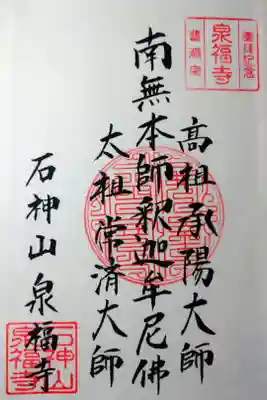 泉福寺
高祖承陽大師
南無本師釋迦牟尼佛
太祖常済大師
石神山泉福寺
石神山
泉福寺